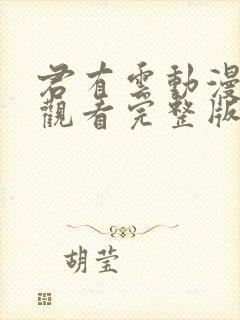 君有雲動漫
觀看完整版
胡莹